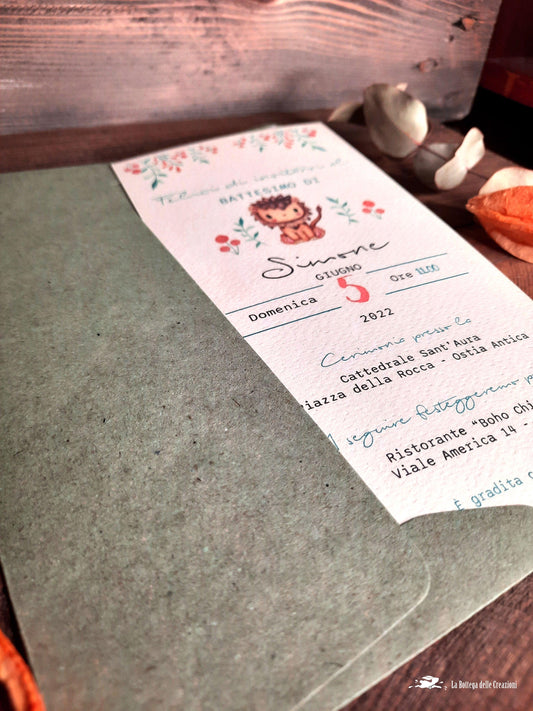 Felici di invitarvi al
BATTESIMO DI
Simone
GIUGNO
Domenica 5 Ore 11.00
2022
Cerimonia presso la
Cattedrale Sant'Aura
iazza della Rocca - Ostia Antica
seguire festeggeremo
Ristorante "Boho Chi
Viale America 14 -
È gradita
La Bottega delle Creazioni